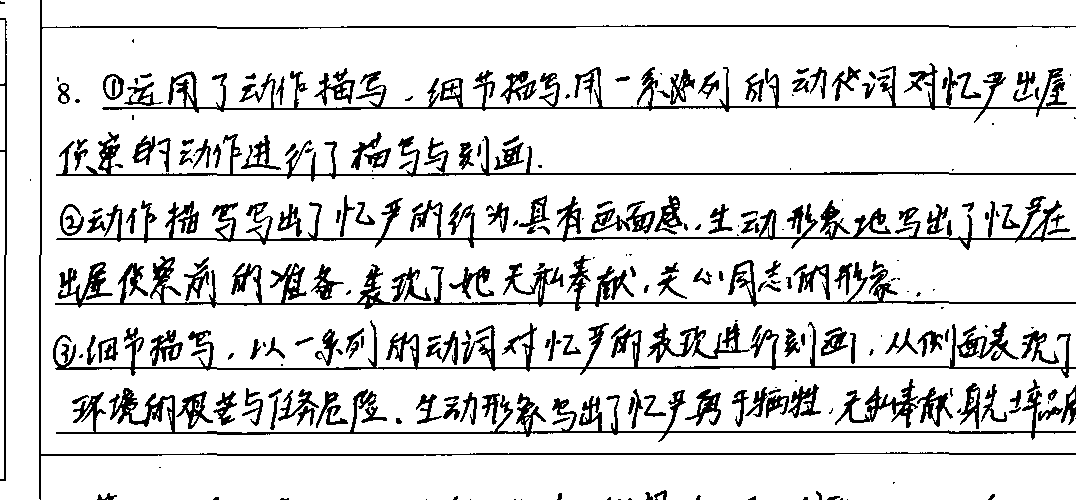 8. ①运用了动作描写、细节描写.用一系列的动作词对忆严出屋
侦察的动作进行了描写与刻画.
②动作描写写出了忆严的行为,具有画面感.生动形象地写出了忆严在
出屋侦察前的准备.表现了她无私奉献,关心同志的形象.
③.细节描写,以一系列的动词对忆严的表现进行刻画,从侧面表现了
环境的艰苦与任务危险.生动形象写出了忆严勇于牺牲,无私奉献,身先士卒品质